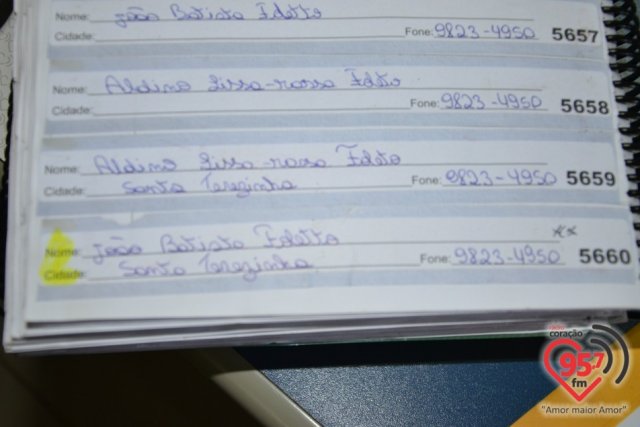 Nome: João Batista Feletto
Cidade: Fone: 9823-4950 5657
Nome: Aldino
Cidade: Fone: 9823-4950 5658
Nome: Aldino
Cidade: Santa Terezinha Fone: 9823-4950 5659
Nome: João Batista Feletto xx
Cidade: Santa Terezinha Fone: 9823-4950 5660
rádio
coração
95.7
fm
"Amor maior Amor"